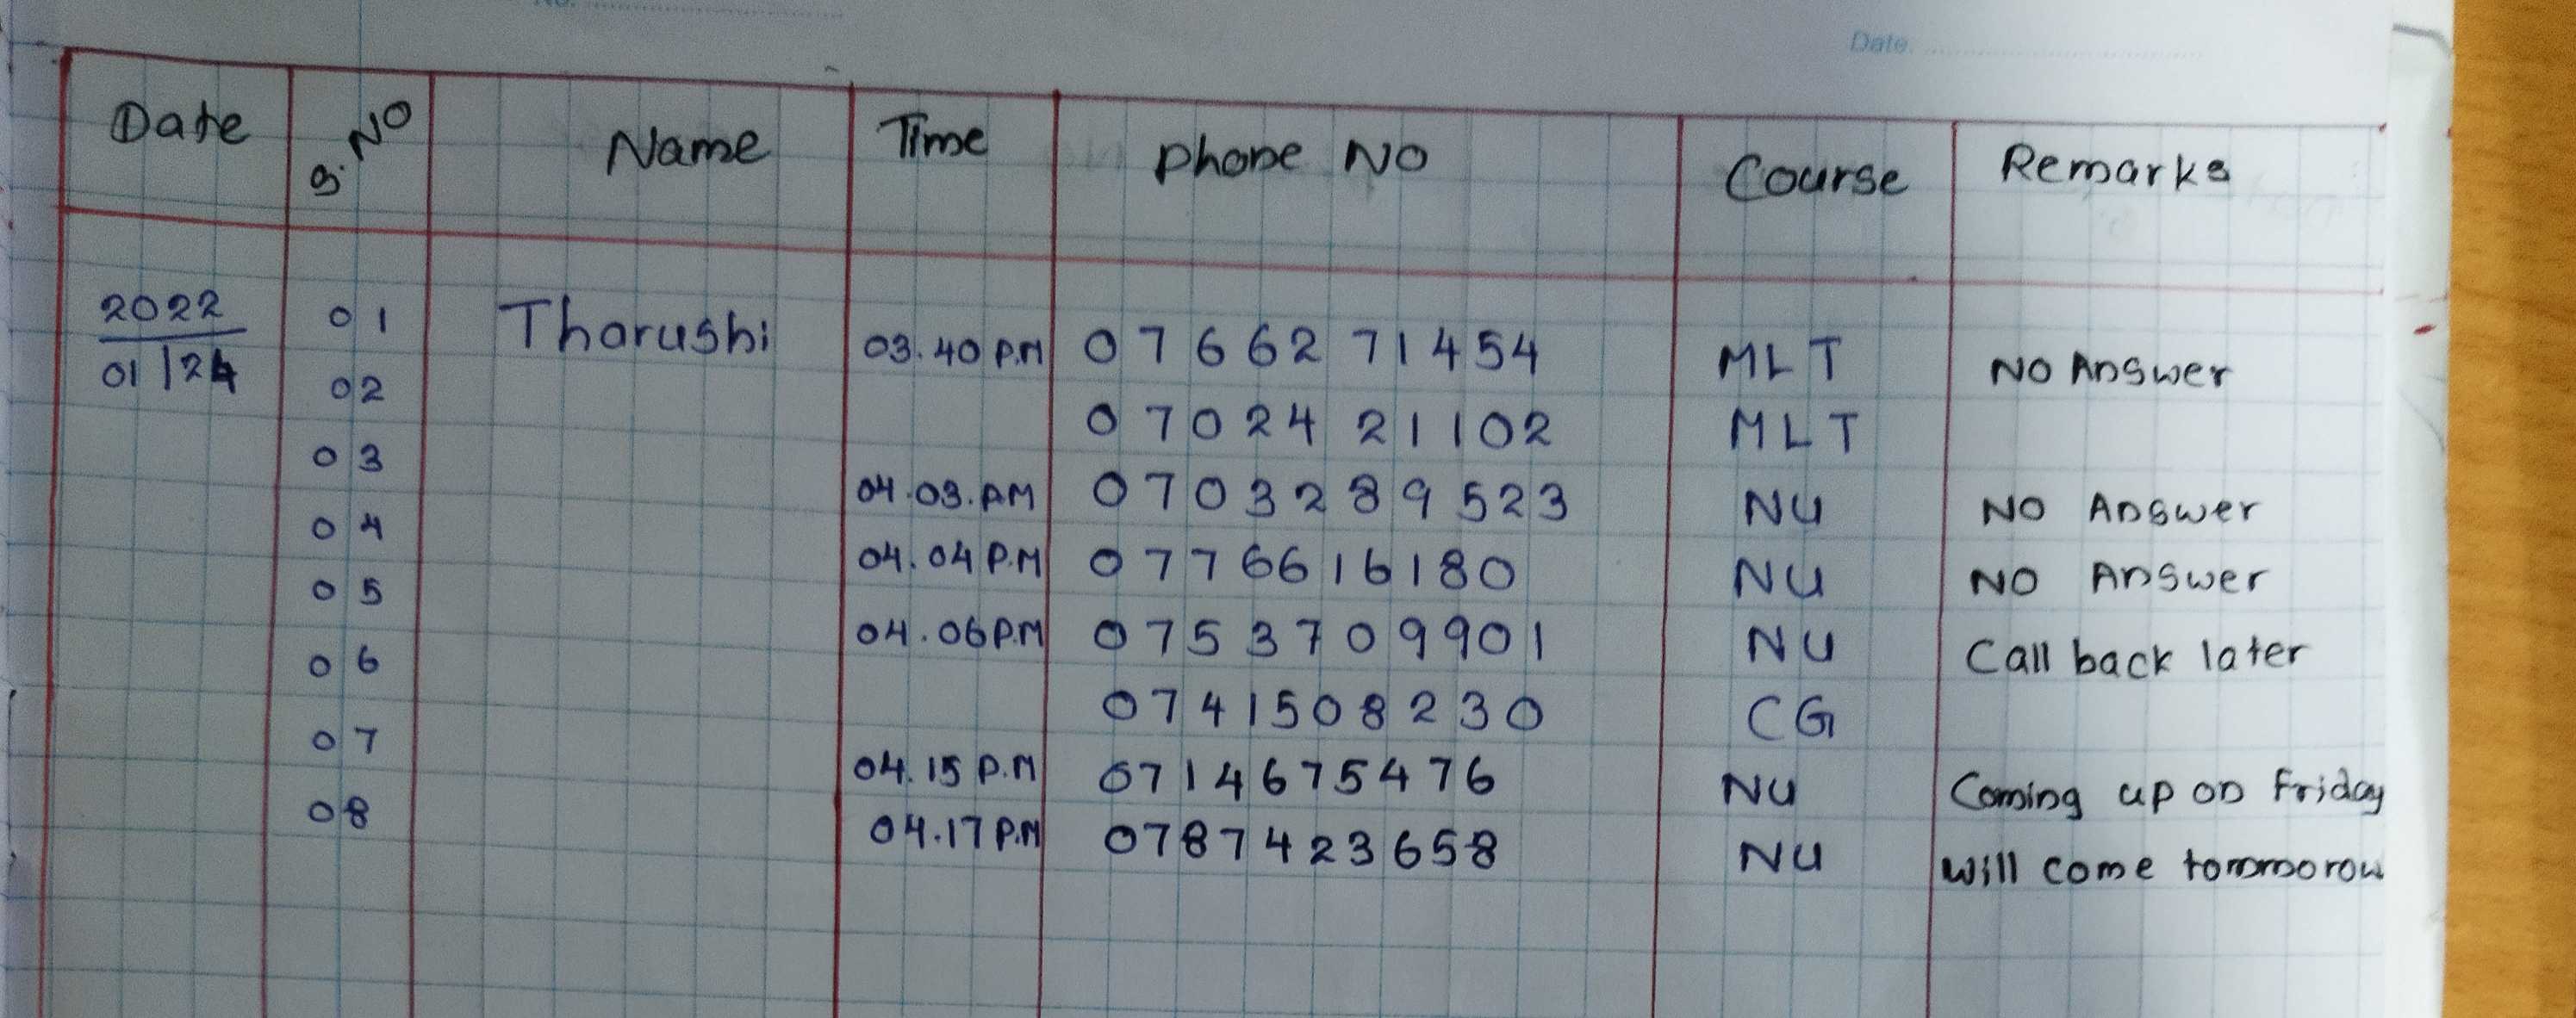 No.
Date.
Date S.NO Name Time Phone NO Course Remarks
2022 01 Tharushi 03.40 P.M 0766271454 MLT NO Answer
01/24 02 0702421102 MLT
03 04.03.PM 0703289523 NU NO Answer
04 04.04 P.M 0776616180 NU NO Answer
05 04.06 P.M 0753709901 NU Call back later
06 0741508230 CG
07 04.15 P.M 0714675476 NU Coming up on Friday
08 04.17 P.M 0787423658 NU Will come tommorow